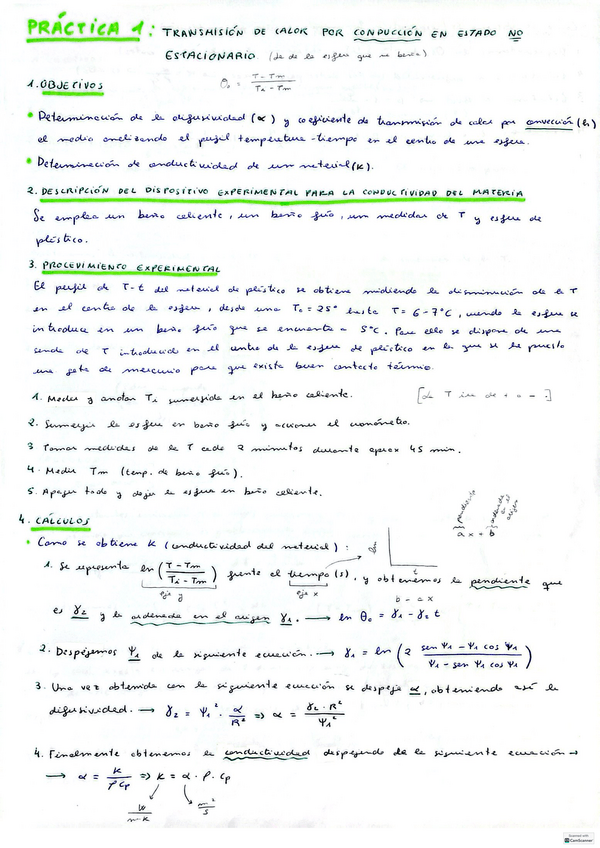 PRÁCTICA 1: TRANSMISIÓN DE CALOR POR CONDUCCIÓN EN ESTADO NO
ESTACIONARIO (de de la esfera que no)
θo = T - Tm / Ti - Tm
1. OBJETIVOS
• Determinación de la difusividad (α) y coeficiente de transmisión de calor por convección (h)
el medio analizando el perfil temperatura-tiempo en el centro de una esfera.
• Determinación de conductividad de un material (K).
2. DESCRIPCIÓN DEL DISPOSITIVO EXPERIMENTAL PARA LA CONDUCTIVIDAD DEL MATERIA
Se emplea un baño caliente, un baño frío, un medidor de T y esfera de
plástico.
3. PROCEVIMIENTO EXPERIMENTAL
El perfil de T-t del material de plástico se obtiene midiendo la disminución de la T
en el centro de la esfera, desde una To = 25° hasta T = 6-7°C, cuando la esfera se
introduce en un baño frío que se encuentra a 5°C. Para ello se dispone de una
sonda de T introducida en el centro de la esfera de plástico en la que se ha puesto
una gota de mercurio para que exista buen contacto térmico.
1. Medir y anotar Ti sumergida en el baño caliente. [de T in de + a -]
2. Sumergir la esfera en baño frío y accionar el cronómetro.
3 Tomar medidas de la T cada 2 minutos durante aprox 45 min.
4. Medir Tm (temp. de baño frío).
5. Apagar todo y dejar la esfera en baño caliente.
pendiente ordenada en el origen
a x + b
4. CÁLCULOS
• Como se obtiene K (conductividad del material):
1. Se representa ln (T - Tm / Ti - Tm) frente al tiempo (s), y obtenemos la pendiente que
eje y eje x t b - ax
es γ2 y la ordenada en el origen γ1. → ln θo = γ1 - γ2 t
2. Despejamos Ψ1 de la siguiente ecuación. → γ1 = ln (2 sen Ψ1 - Ψ1 cos Ψ1 / Ψ1 - sen Ψ1 cos Ψ1)
3. Una vez obtenida con la siguiente ecuación se despeja α, obteniendo así la
difusividad. → γ2 = Ψ1² · α / R² => α = γ2 · R² / Ψ1²
4. Finalmente obtenemos la conductividad despejando de la siguiente ecuación →
→ α = K / ρ Cp => K = α · ρ · Cp
W / m·K m² / s
Scanned with
CamScanner